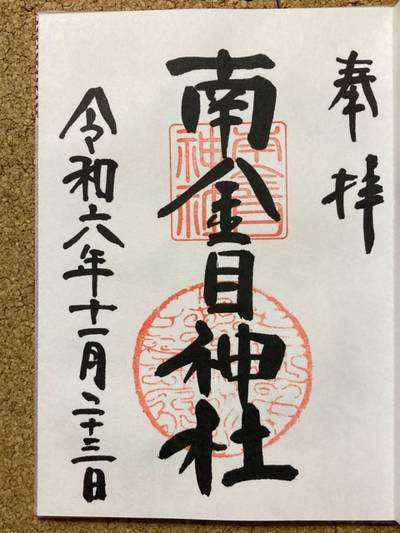 奉拝
南金目神社
令和六年十一月二十三日